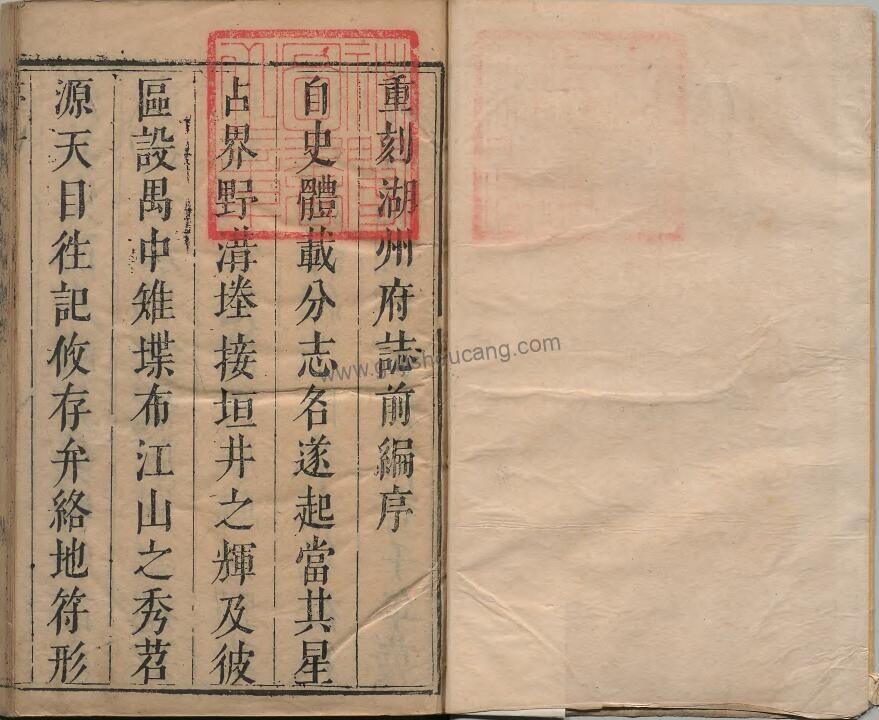 重刻湖州府誌前編序
自史體載分志名遂起當其星
占界野溝塍接垣井之輝及彼
區設禺中雉堞布江山之秀苕
源天目徃記攸存弁絡地符形